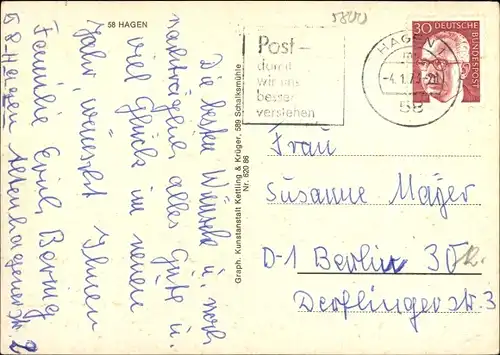 58 HAGEN
Die besten Wünsche u. noch
nachträglich alles Gute u.
viel Glück im neuen
Jahr, wünscht Ihnen
Familie Erich Bernig
58-Hagen Altenhagenerstr. 2
Graph. Kunstanstalt Kettling & Krüger, 589 Schalksmühle
Nr. 620 86
5800
Post-
damit
wir uns
besser
verstehen
HAGEN 1
-4.1.7
58
30 DEUTSCHE
BUNDESPOST
Frau
Susanne Mayer
D-1 Berlin 30
Derflingerstr. 3